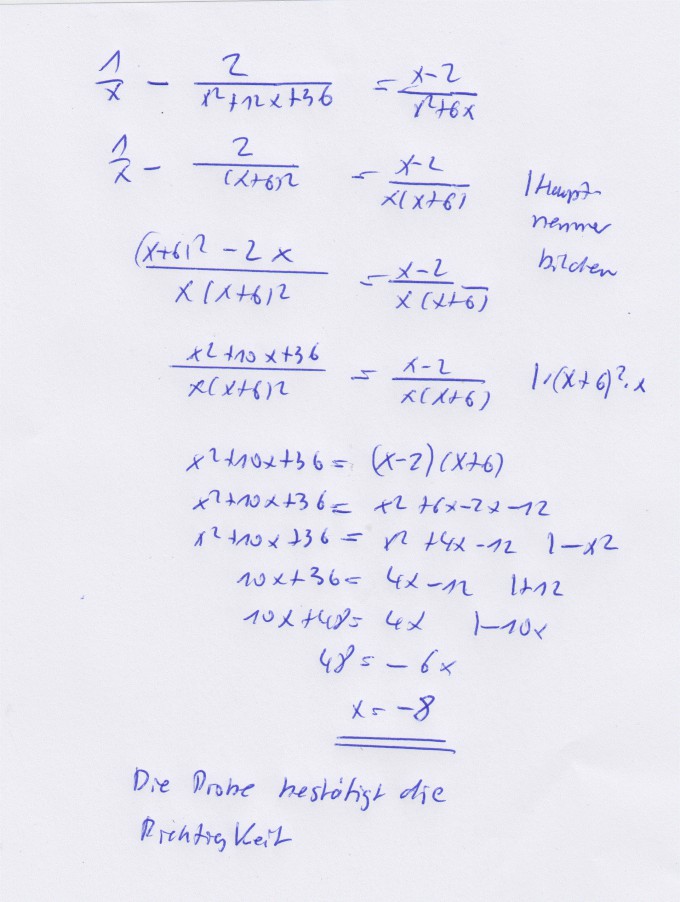 1/x - 2/(x²+12x+36) = (x-2)/(x²+6x)
1/x - 2/(x+6)² = (x-2)/(x(x+6)) | Haupt-
nenner
bilden
((x+6)² - 2x)/(x(x+6)²) = (x-2)/(x(x+6))
(x²+10x+36)/(x(x+6)²) = (x-2)/(x(x+6)) |·(x+6)²·x
x²+10x+36 = (x-2)(x+6)
x²+10x+36 = x²+6x-2x-12
x²+10x+36 = x²+4x-12 |-x²
10x+36 = 4x-12 |+12
10x+48 = 4x |-10x
48 = -6x
x = -8
Die Probe bestätigt die
Richtigkeit